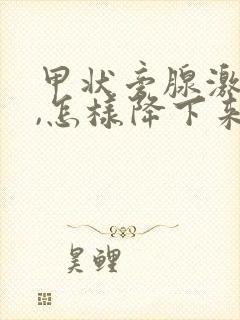 甲状旁腺激
,怎样降下来
昊鲤